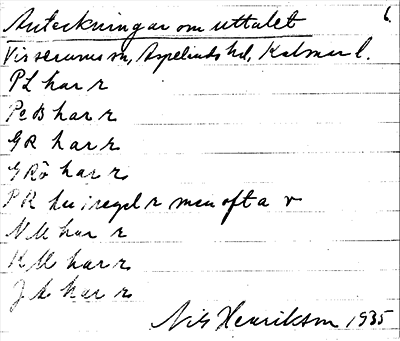 Anteckningar om uttalet 6.
Vissefjärda sn, Aspelands hd, Kalmar l.
PL har r
PeB har r
GR har r
GRö har r
PR har i regel r men ofta v
NM har r
KM har r
JL har r
Nils Henrikson 1935